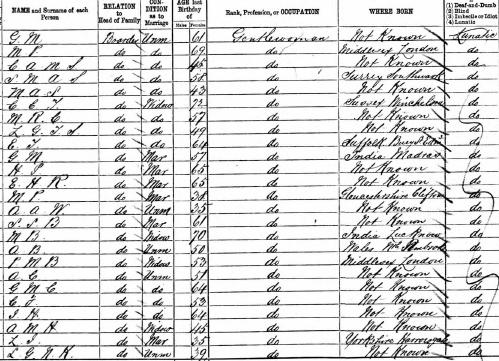 NAME and Surname of each Person RELATION to Head of Family CON-DITION as to Marriage AGE last Birthday of Males Females Rank, Profession, or OCCUPATION WHERE BORN (1) Deaf-and-Dumb (2) Blind (3) Imbecile or Idiot (4) Lunatic
G M Boarder Unm 61 Gentlewoman Not Known Lunatic
M P do do 69 do Middlesex London do
C A M S do do 45 do Not Known do
S M A S do do 58 do Surrey Southwark do
M A S do do 43 do Not Known do
C E T do Widow 72 do Sussex Winchelsea do
M R C do do 57 do Not Known do
L G T S do do 49 do Not Known do
E T do do 64 do Suffolk do
G M do Mar 57 do India Madras do
H P do Mar 65 do Not Known do
E H R do Mar 65 do Not Known do
M P do Mar do Gloucestershire Clifton do
A A W do Unm 35 do Not Known do
S S B do Mar 61 do Not Known do
M B do Widow 70 do India Lucknow do
A B do Unm 50 do Wales Pembroke do
P M B do Widow 53 do Middlesex London do
A C do Unm 51 do Not Known do
G M C do do 64 do Not Known do
C F do do 53 do Not Known do
I H do do 64 do Not Known do
A M H do Widow 45 do Not Known do
L I do Mar 35 do Yorkshire Harrogate do
L G N K do Unm 39 do Not Known do